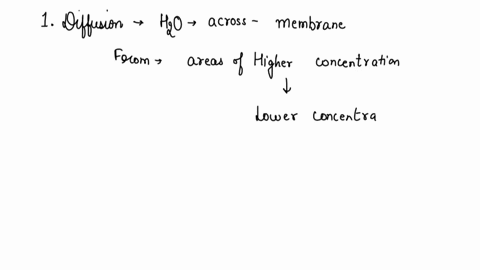 1. Diffusion → H₂O → across - membrane
From → areas of Higher concentration
↓
Lower concentra